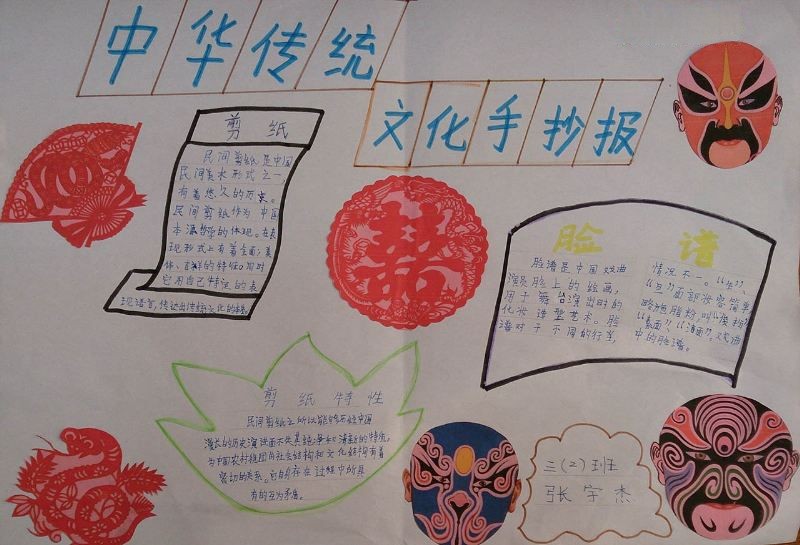 中华传统
文化手抄报
剪纸
民间剪纸是中国
民间美术形式之一，
有着悠久的历史。
民间剪纸作为中国
本源哲学的体现。在表
现形式上有着全面，美
化、吉祥的特征。同时
它用自己特定的表
现语言，传达出传统文化的
脸谱
脸谱是中国戏曲
演员脸上的绘画，
用于舞台演出时的
化妆造型艺术。脸
谱对于不同的行当，
情况不一。“生”、
“旦”面部妆容简单
略施脂粉，叫“俊扮”
“素面”、“洁面”。戏曲
中的脸谱。
剪纸特性
民间剪纸之所以能够历经中国
漫长的历史
为中国农村
密切的关系。它的存在过程中所具
有的互为矛盾。
三(2)班
张宇杰